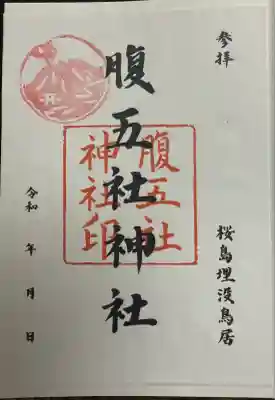 参拝
桜島埋没鳥居
腹五社神社
腹五社
神社印
令和 年 月 日